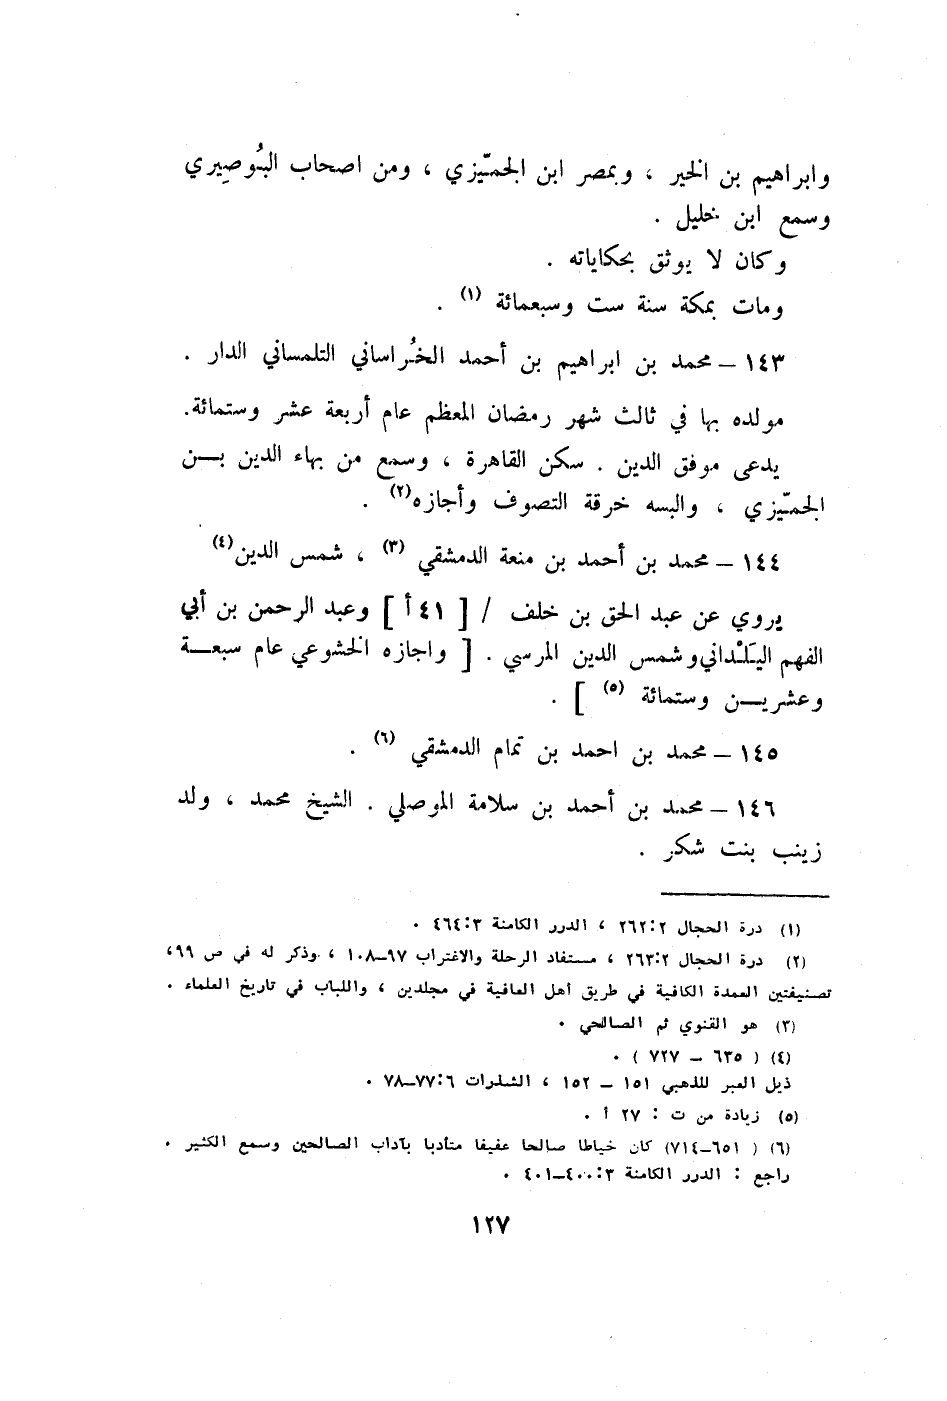 وابراهيم بن الخير ، وبمصر ابن الجمّيزي ، ومن اصحاب البُوصِيري
وسمع ابن خليل .
وكان لا يوثق بحكاياته .
ومات بمكة سنة ست وسبعمائة (١) .
١٤٣ — محمد بن ابراهيم بن أحمد الخُراساني التلمساني الدار .
مولده بها في ثالث شهر رمضان المعظم عام أربعة عشر وستمائة.
يدعى موفق الدين . سكن القاهرة ، وسمع من بهاء الدين بــن
الجمّيزي ، والبسه خرقة التصوف وأجازه(٢) .
١٤٤ — محمد بن أحمد بن منعة الدمشقي (٣) ، شمس الدين(٤)
يروي عن عبد الحق بن خلف / [ ٤١ أ ] وعبد الرحمن بن أبي
الفهم اليَلْداني وشمس الدين المرسي . [ واجازه الخشوعي عام سبعــة
وعشريــن وستمائة (٥) ] .
١٤٥ — محمد بن احمد بن تمام الدمشقي (٦) .
١٤٦ — محمد بن أحمد بن سلامة الموصلي . الشيخ محمد ، ولد
زينب بنت شكر .
(١) درة الحجال ٢:‏٢٦٢ ، الدرر الكامنة ٣:‏٤٦٤ .
(٢) درة الحجال ٢:‏٢٦٣ ، مستفاد الرحلة والاغتراب ٩٧—١٠٨ ، وذكر له في ص ٩٩،
تصنيفتين العمدة الكافية في طريق أهل العافية في مجلدين ، واللباب في تاريخ العلماء .
(٣) هو القنوي ثم الصالحي .
(٤) ( ٦٣٥ — ٧٢٧ ) .
ذيل العبر للذهبي ١٥١ — ١٥٢ ، الشذرات ٦:‏٧٧—٧٨ .
(٥) زيادة من ت : ٢٧ أ .
(٦) ( ٦٥١—٧١٤) كان خياطا صالحا عفيفا متأدبا بآداب الصالحين وسمع الكثير .
راجع : الدرر الكامنة ٣:‏٤٠٠—٤٠١ .
١٢٧